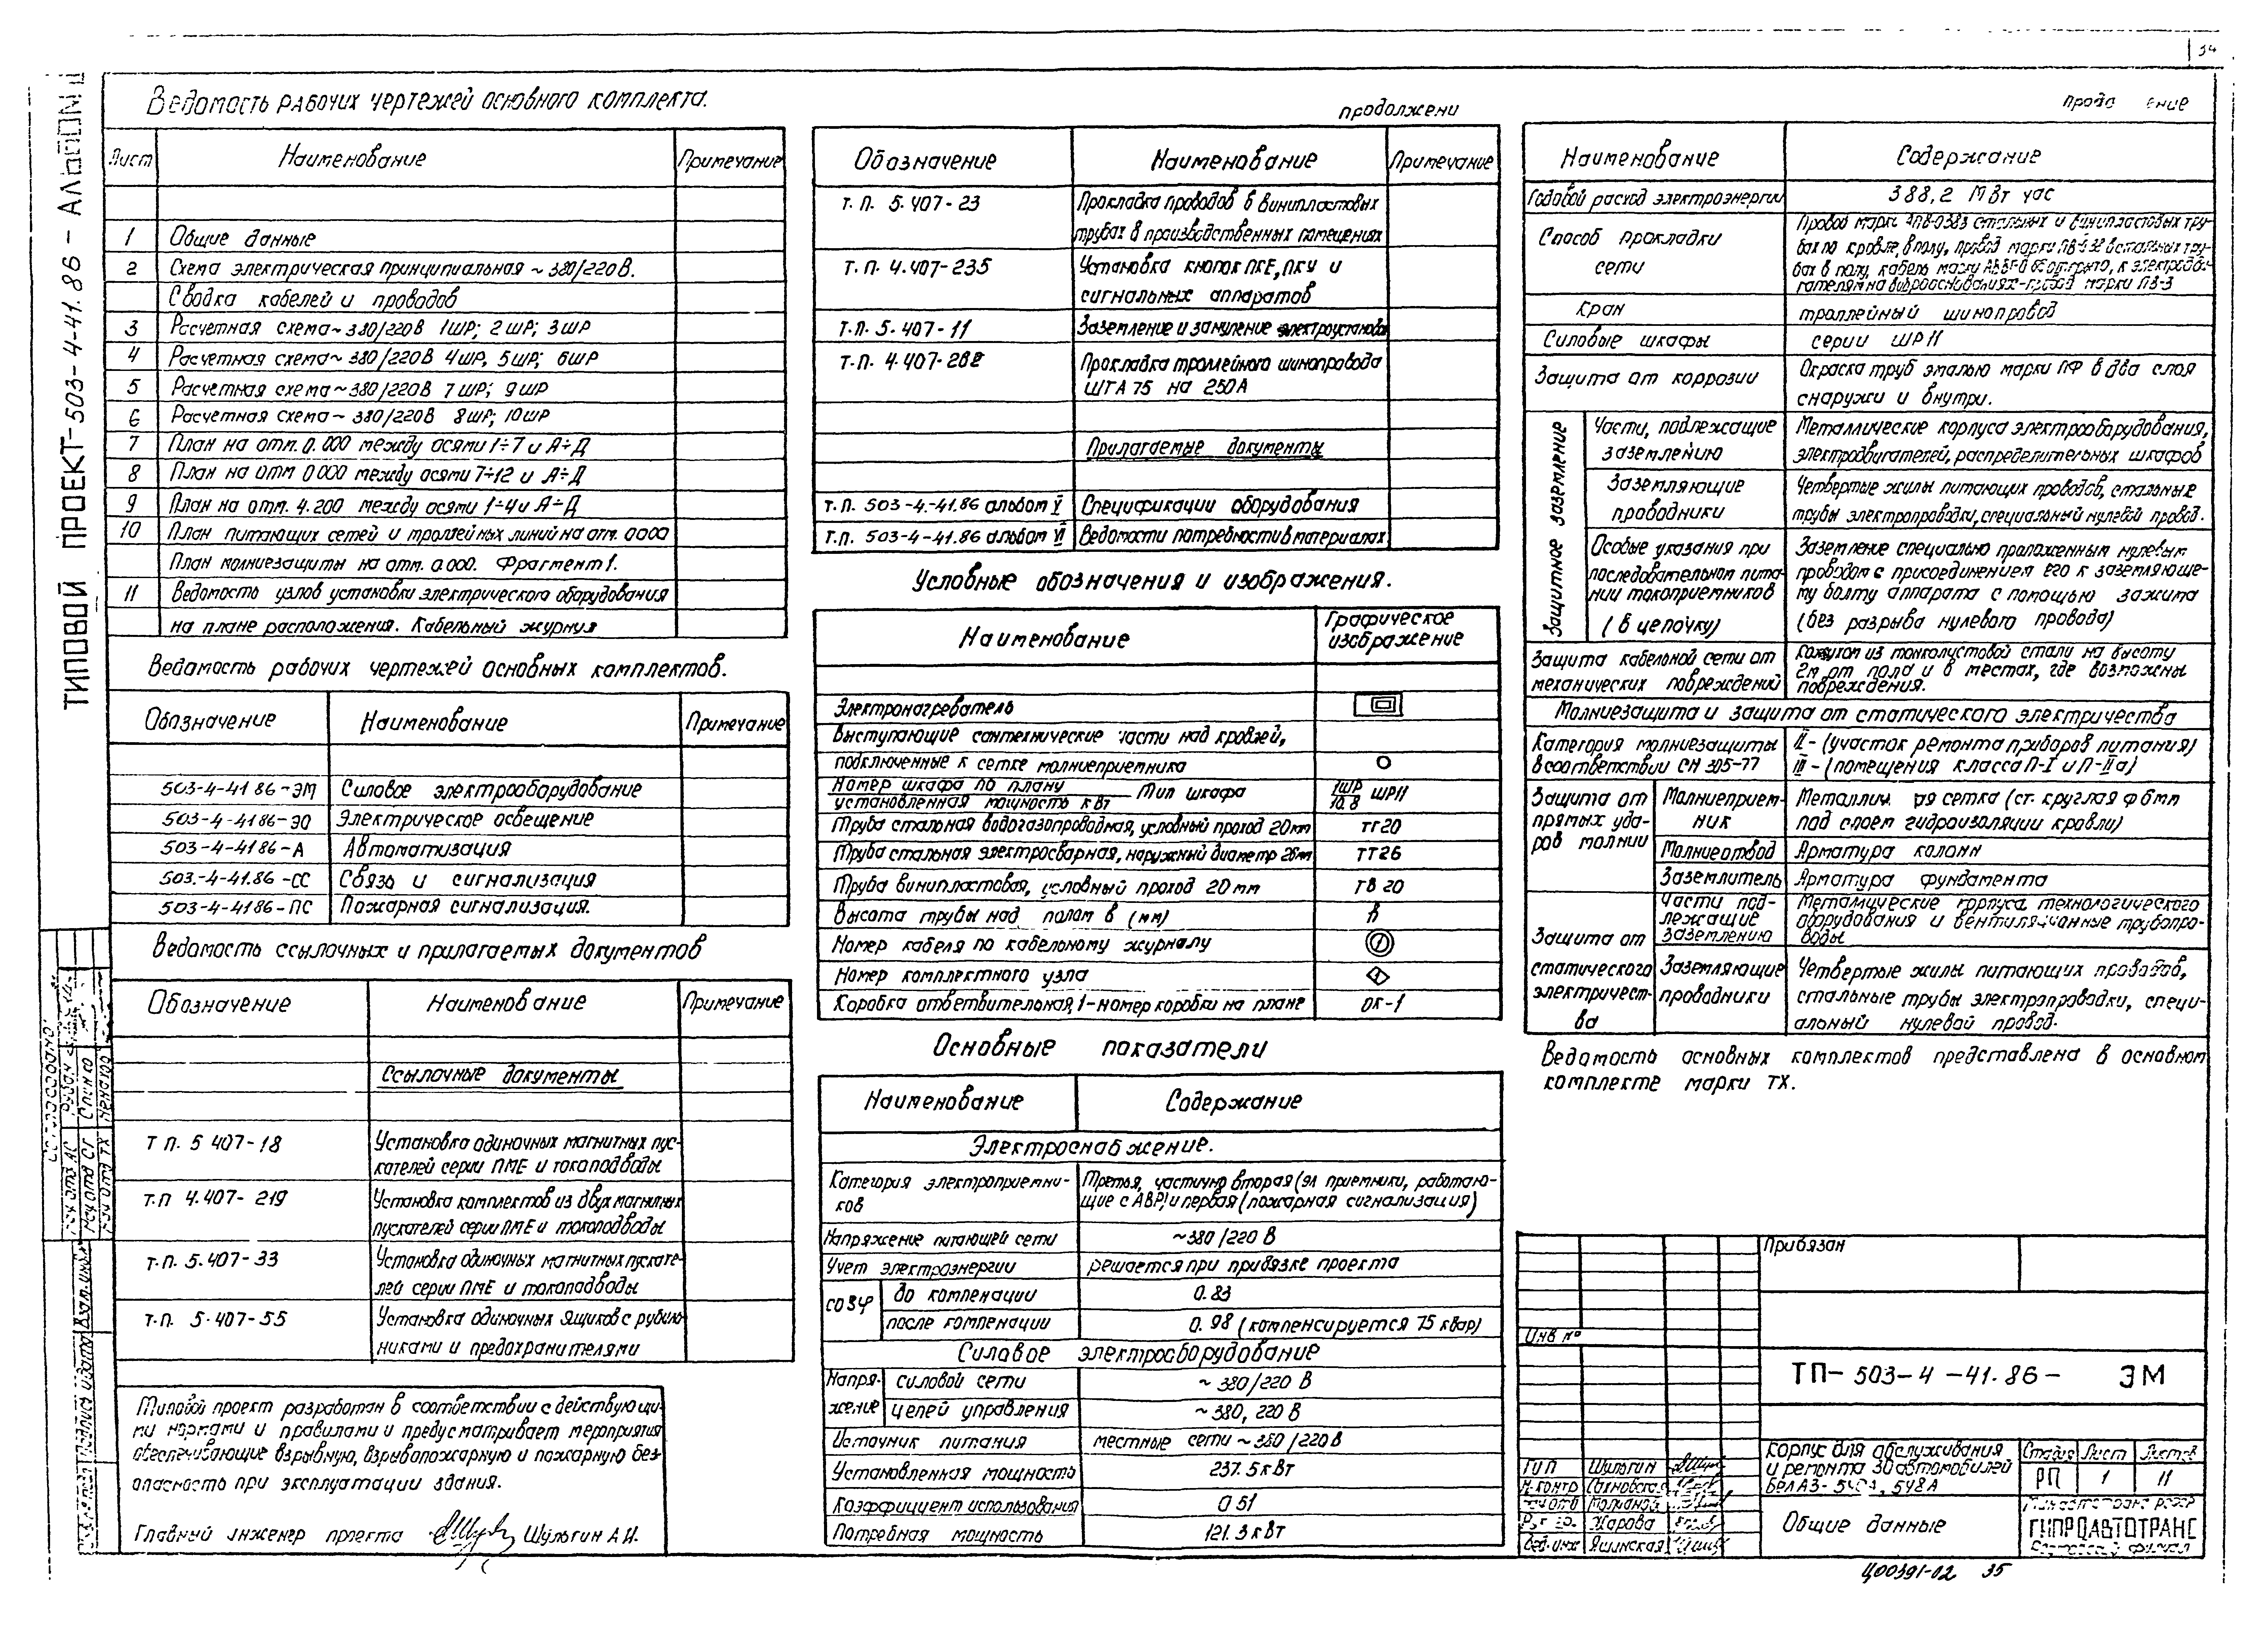 34
ТИПОВОЙ ПРОЕКТ-503-4-41.86 - АЛЬБОМ
Ведомость рабочих чертежей основного комплекта.
Лист Наименование Примечание
1 Общие данные
2 Схема электрическая принципиальная ~380/220В.
Сводка кабелей и проводов
3 Расчетная схема~380/220В 1ШР; 2ШР; 3ШР
4 Расчетная схема~380/220В 4ШР, 5ШР; 6ШР
5 Расчетная схема~380/220В 7ШР; 9ШР
6 Расчетная схема~380/220В 8ШР; 10ШР
7 План на отм. 0.000 между осями 1÷7 и А÷Д
8 План на отм 0 000 между осями 7÷12 и А÷Д
9 План на отм. 4.200 между осями 1÷4 и А÷Д
10 План питающих сетей и троллейных линий на отм. 0 000
План молниезащиты на отм. 0.000. Фрагмент 1.
11 Ведомость узлов установки электрического оборудования
на плане расположения. Кабельный журнал
Ведомость рабочих чертежей основных комплектов.
Обозначение Наименование Примечание
503-4-41 86-ЭМ Силовое электрооборудование
503-4-41 86-ЭО Электрическое освещение
503-4-41 86-А Автоматизация
503.-4-41.86-СС Связь и сигнализация
503-4-41 86-ПС Пожарная сигнализация.
Ведомость ссылочных и прилагаемых документов
Обозначение Наименование Примечание
Ссылочные документы
Т П. 5 407-18 Установка одиночных магнитных пус-
кателей серии ПМЕ и токоподводы
т.п 4.407-219 Установка комплектов из двух магнитных
пускателей серии ПМЕ и токоподводы
т.п. 5.407-33 Установка одиночных магнитных пускате-
лей серии ПМЕ и токоподводы
т.п. 5.407-55 Установка одиночных ящиков с рубиль-
никами и предохранителями
Типовой проект разработан в соответствии с действующи-
ми нормами и правилами и предусматривает мероприятия
обеспечивающие взрывную, взрывопожарную и пожарную без-
опасность при эксплуатации здания.
Главный инженер проекта Шульгин А.И.
продолжени
Обозначение Наименование Примечание
т. п. 5.407-23 Прокладка проводов в винипластовых
трубах в производственных помещениях
т. п. 4.407-235 Установка кнопок ПКЕ, ПКУ и
сигнальных аппаратов
т.п. 5.407-11 Заземление и зануление электроустановок
т.п. 4.407-262 Прокладка троллейного шинопровода
ШТА 75 на 250А
Прилагаемые документы
т.п. 503-4-41.86 альбом V Спецификации оборудования
т.п. 503-4-41.86 альбом VI Ведомости потребности в материалах
Условные обозначения и изображения.
Наименование Графическое изображение
Электронагреватель
Выступающие сантехнические части над кровлей,
подключенные к сетке молниеприемника
Номер шкафа по плану
установленная мощность кВт Тип шкафа 1ШР 10.8 ШР11
Труба стальная водогазопроводная, условный проход 20мм тг20
Труба стальная электросварная, наружный диаметр 26мм ТТ26
Труба винипластовая, условный проход 20мм ТВ 20
Высота трубы над полом в (мм) h
Номер кабеля по кабельному журналу 1
Номер комплектного узла 1
Коробка ответвительная, 1-номер коробки на плане ОК-1
Основные показатели
Наименование Содержание
Электроснабжение.
Категория электроприемни-
ков
Третья, частично вторая (эл приемники, работаю-
щие с АВР) и первая (пожарная сигнализация)
Напряжение питающей сети ~380/220 В
Учет электроэнергии решается при привязке проекта
cosφ до компенации 0.83
после компенации 0.98 (компенсируется 75 квар)
Силовое электрооборудование
Напря-жение силовой сети ~380/220 В
цепей управления ~380, 220 В
Источник питания местные сети ~380/220В
Установленная мощность 237.5кВт
Коэффициент использования 0 51
Потребная мощность 121.3 кВт
Наименование Содержание
Годовой расход электроэнергии 388,2 МВт час
Способ прокладки
сети
Кран троллейный шинопровод
Силовые шкафы серии ШР11
Защита от коррозии Окраска труб эмалью марки ПФ в два слоя
снаружи и внутри.
Защитное заземление
Части, подлежащие
заземлению
Металлические корпуса электрооборудования,
электродвигателей, распределительных шкафов
Заземляющие
проводники
Четвертые жилы питающих проводов, стальные
трубы электропроводки, специальный нулевой провод.
Особые указания при
последовательном пита-
нии токоприемников
(в цепочку)
Заземление специально проложенным нулевым
проводом с присоединением его к заземляюще-
му болту аппарата с помощью зажима
(без разрыва нулевого провода)
Защита кабельной сети от
механических повреждений
Кожухом из тонколистовой стали на высоту
2м от пола и в местах, где возможны
повреждения.
Молниезащита и защита от статического электричества
Категория молниезащиты
в соответствии СН 305-77
II - (участок ремонта приборов питания)
III - (помещения класса П-I и П-IIа)
Защита от
прямых уда-
ров молнии
Молниеприем-
ник
Металлич. ая сетка (ст. круглая ф 6мм
под слоем гидроизоляции кровли)
Молниеотвод Арматура колонн
Заземлитель Арматура фундамента
Защита от
статического
электричест-
ва
Части под-
лежащие
заземлению
Металлические корпуса технологического
оборудования и вентиляционные трубопро-
воды
Заземляющие
проводники
Четвертые жилы питающих проводов,
стальные трубы электропроводки, специ-
альный нулевой провод.
Ведомость основных комплектов представлена в основном
комплекте марки ТХ.
Привязан
Инв №
ТП- 503-4 -41.86- ЭМ
Корпус для обслуживания
и ремонта 30 автомобилей
БелАЗ- 540А, 548А
Стадия Лист Листов
РП 1 11
Общие данные
ГИПРОАВТОТРАНС
ГИП Шульгин
Н.контр
Жарова
Вед.инж Яшинская
Ц00391-02 35